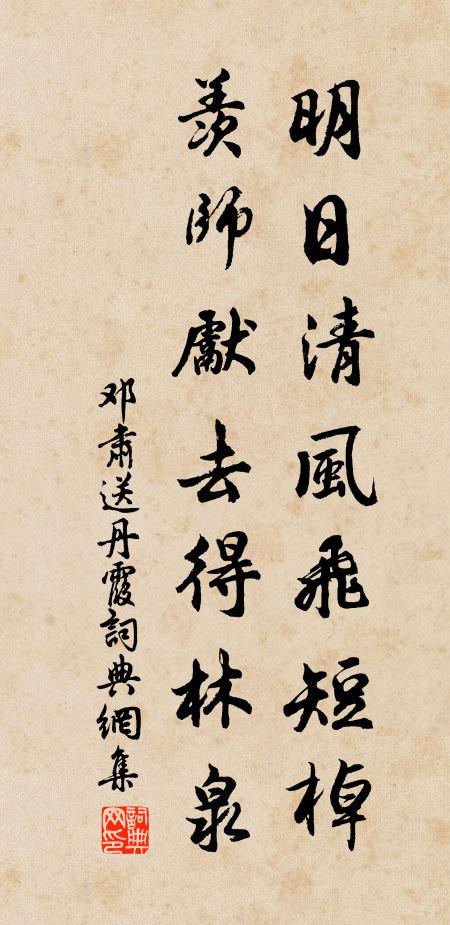 明日清風飛短棹
羨師獻去得林泉
邓肅送丹霞詞典網集
詞典网印